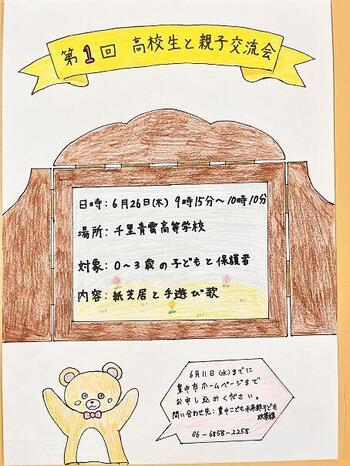 第1回 高校生と親子交流会
日時:6月26日(木) 9時15分〜10時10分
場所:千里青雲高等学校
対象:0〜3歳の子どもと保護者
内容:紙芝居と手遊び歌
6月11日(水)までに
豊中市ホームページまで
お申し込みください。
問い合わせ先:豊中こども未来部こども
政策課
06-6858-2258